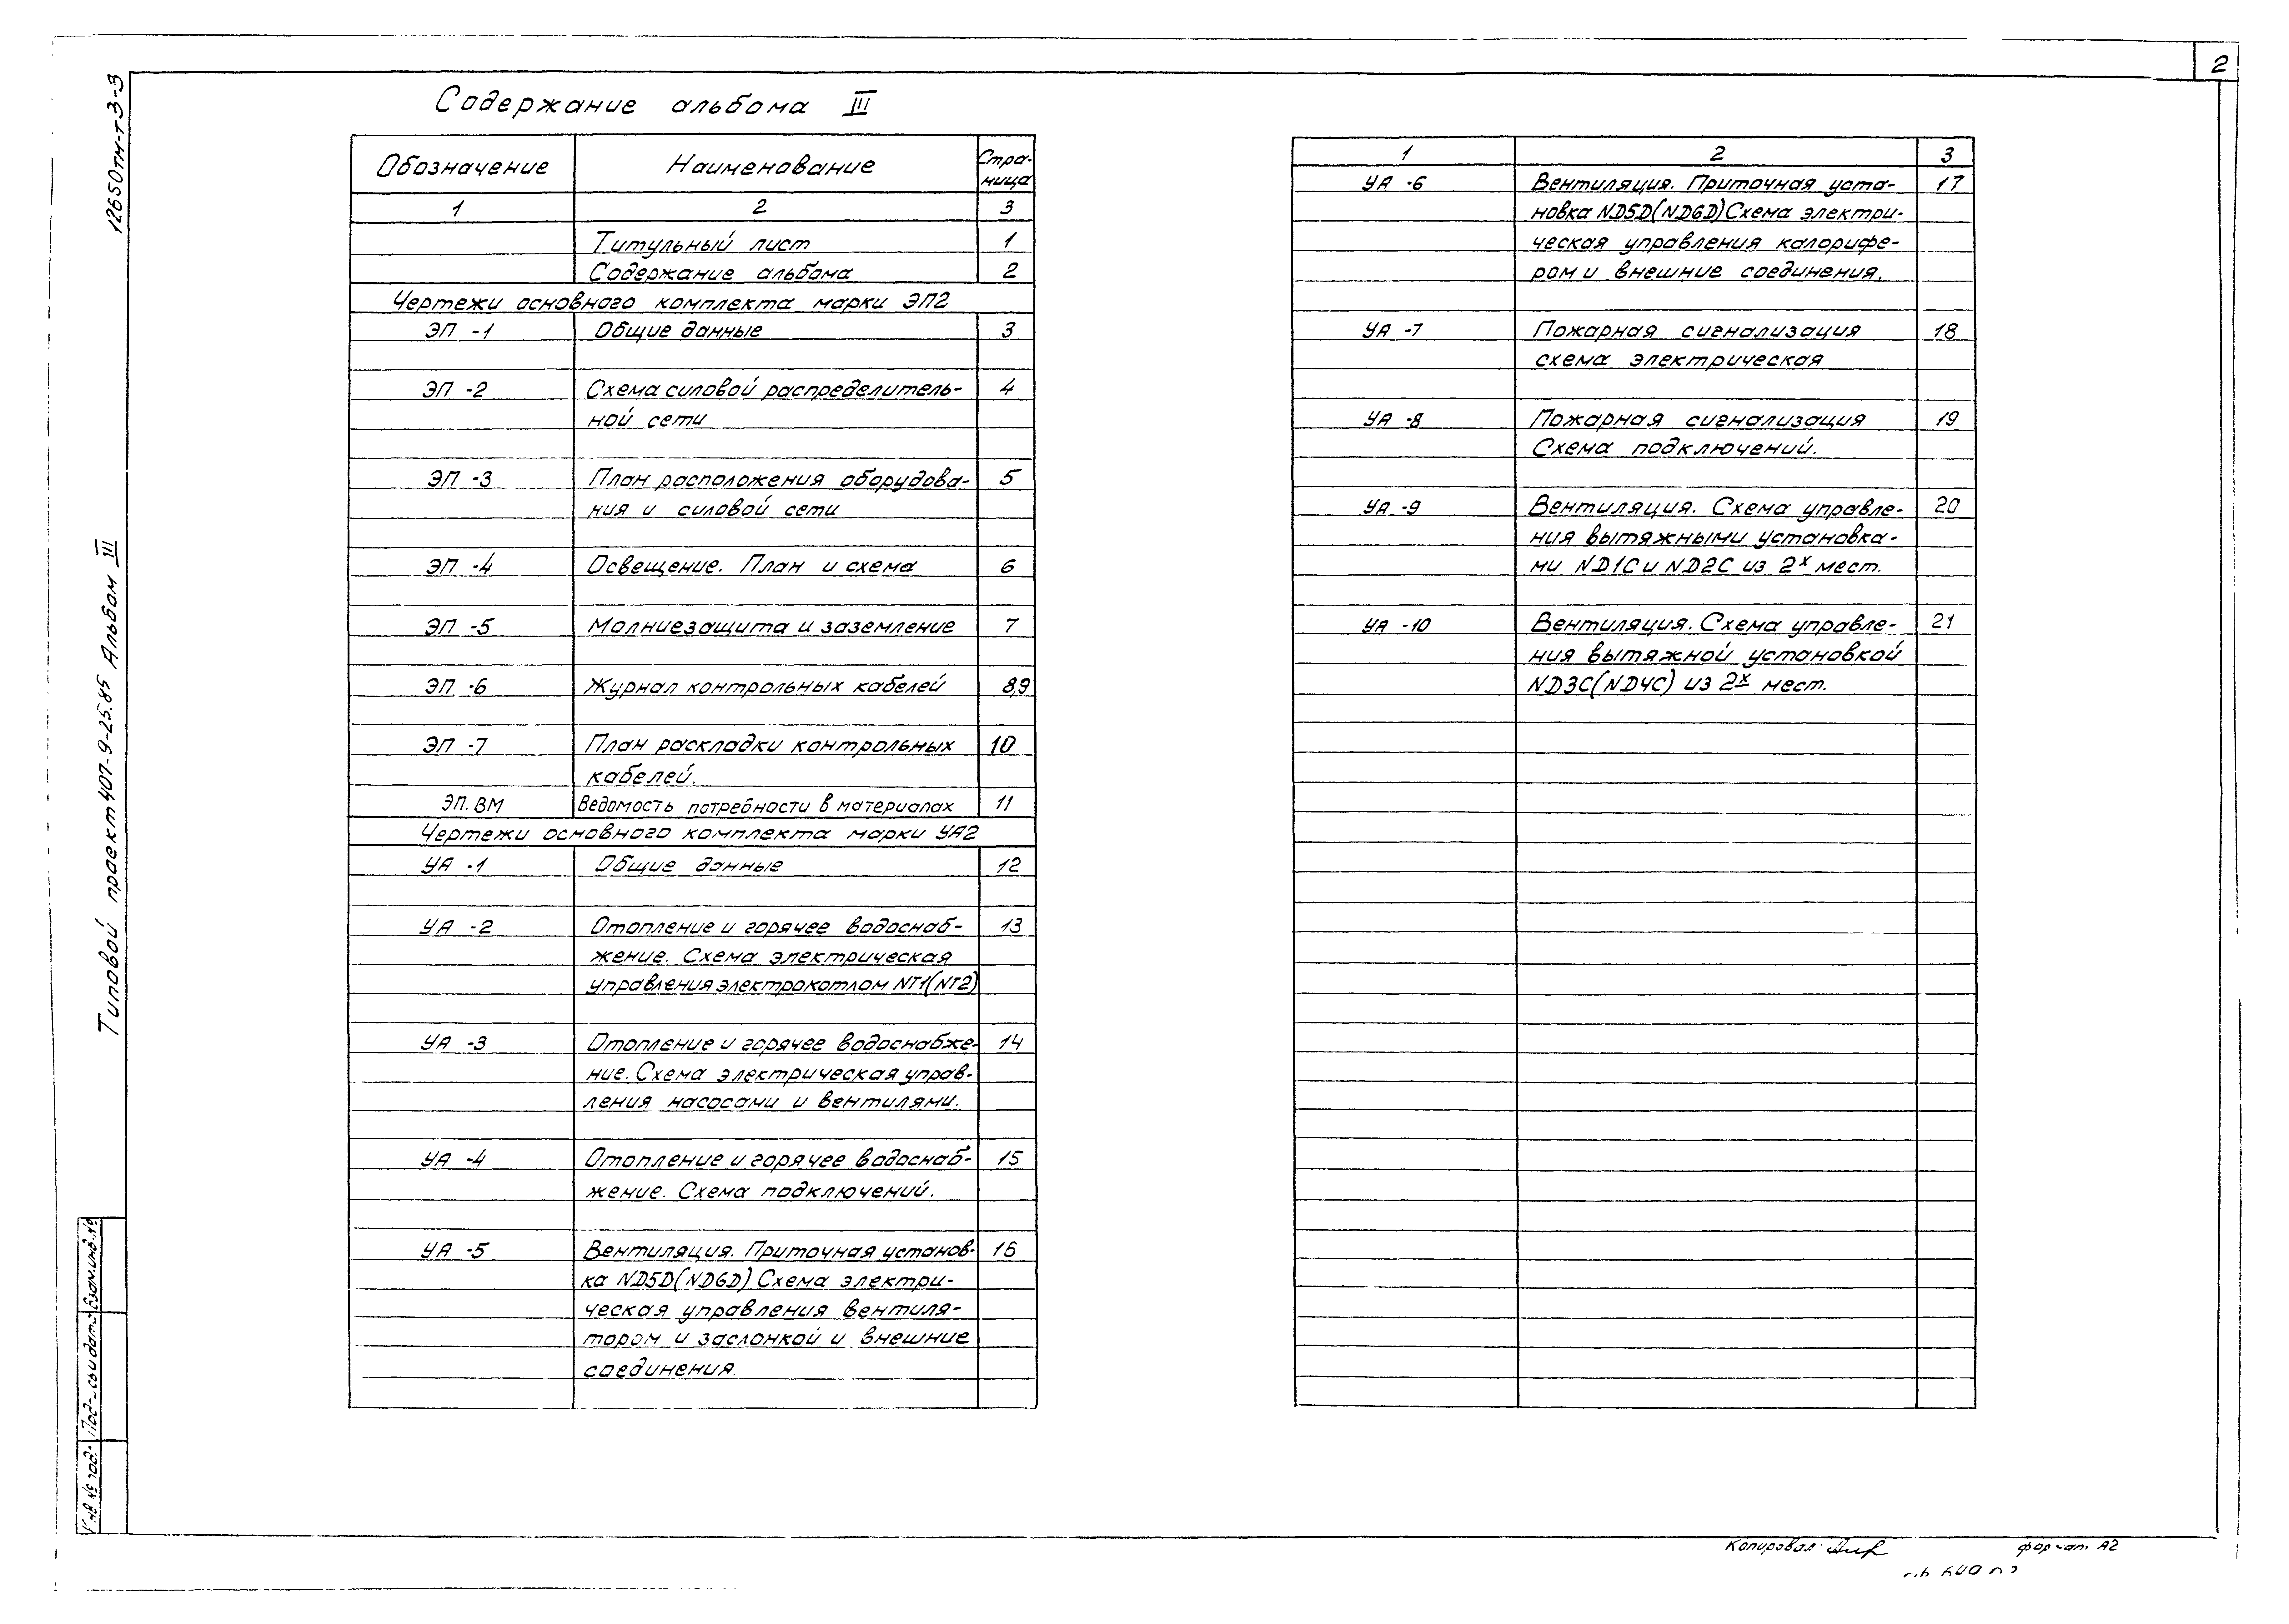 2
12650тм-т3-3
Типовой проект 407-9-25.85 Альбом III
Содержание альбома III
Обозначение Наименование Стра-
ница
1 2 3
Титульный лист 1
Содержание альбома 2
Чертежи основного комплекта марки ЭП2
ЭП -1 Общие данные 3
ЭП -2 Схема силовой распределитель- 4
ной сети
ЭП -3 План расположения оборудова- 5
ния и силовой сети
ЭП -4 Освещение. План и схема 6
ЭП -5 Молниезащита и заземление 7
ЭП -6 Журнал контрольных кабелей 8,9
ЭП -7 План раскладки контрольных 10
кабелей.
ЭП. ВМ Ведомость потребности в материалах 11
Чертежи основного комплекта марки УА2
УА -1 Общие данные 12
УА -2 Отопление и горячее водоснаб- 13
жение. Схема электрическая
управления электрокотлом NT1(NT2)
УА -3 Отопление и горячее водоснабже- 14
ние. Схема электрическая управ-
ления насосами и вентилями.
УА -4 Отопление и горячее водоснаб- 15
жение. Схема подключений.
УА -5 Вентиляция. Приточная установ- 16
ка ND5D(ND6D) Схема электри-
ческая управления вентиля-
тором и заслонкой и внешние
соединения.
1 2 3
УА -6 Вентиляция. Приточная уста- 17
новка ND5D(ND6D) Схема электри-
ческая управления калорифе-
ром и внешние соединения.
УА -7 Пожарная сигнализация 18
схема электрическая
УА -8 Пожарная сигнализация 19
Схема подключений.
УА -9 Вентиляция. Схема управле- 20
ния вытяжными установка-
ми ND1C и ND2C из 2х мест.
УА -10 Вентиляция. Схема управле- 21
ния вытяжной установкой
ND3C(ND4C) из 2х мест.
Взам.инв.№
Инв № под.
Копировал
формат А2